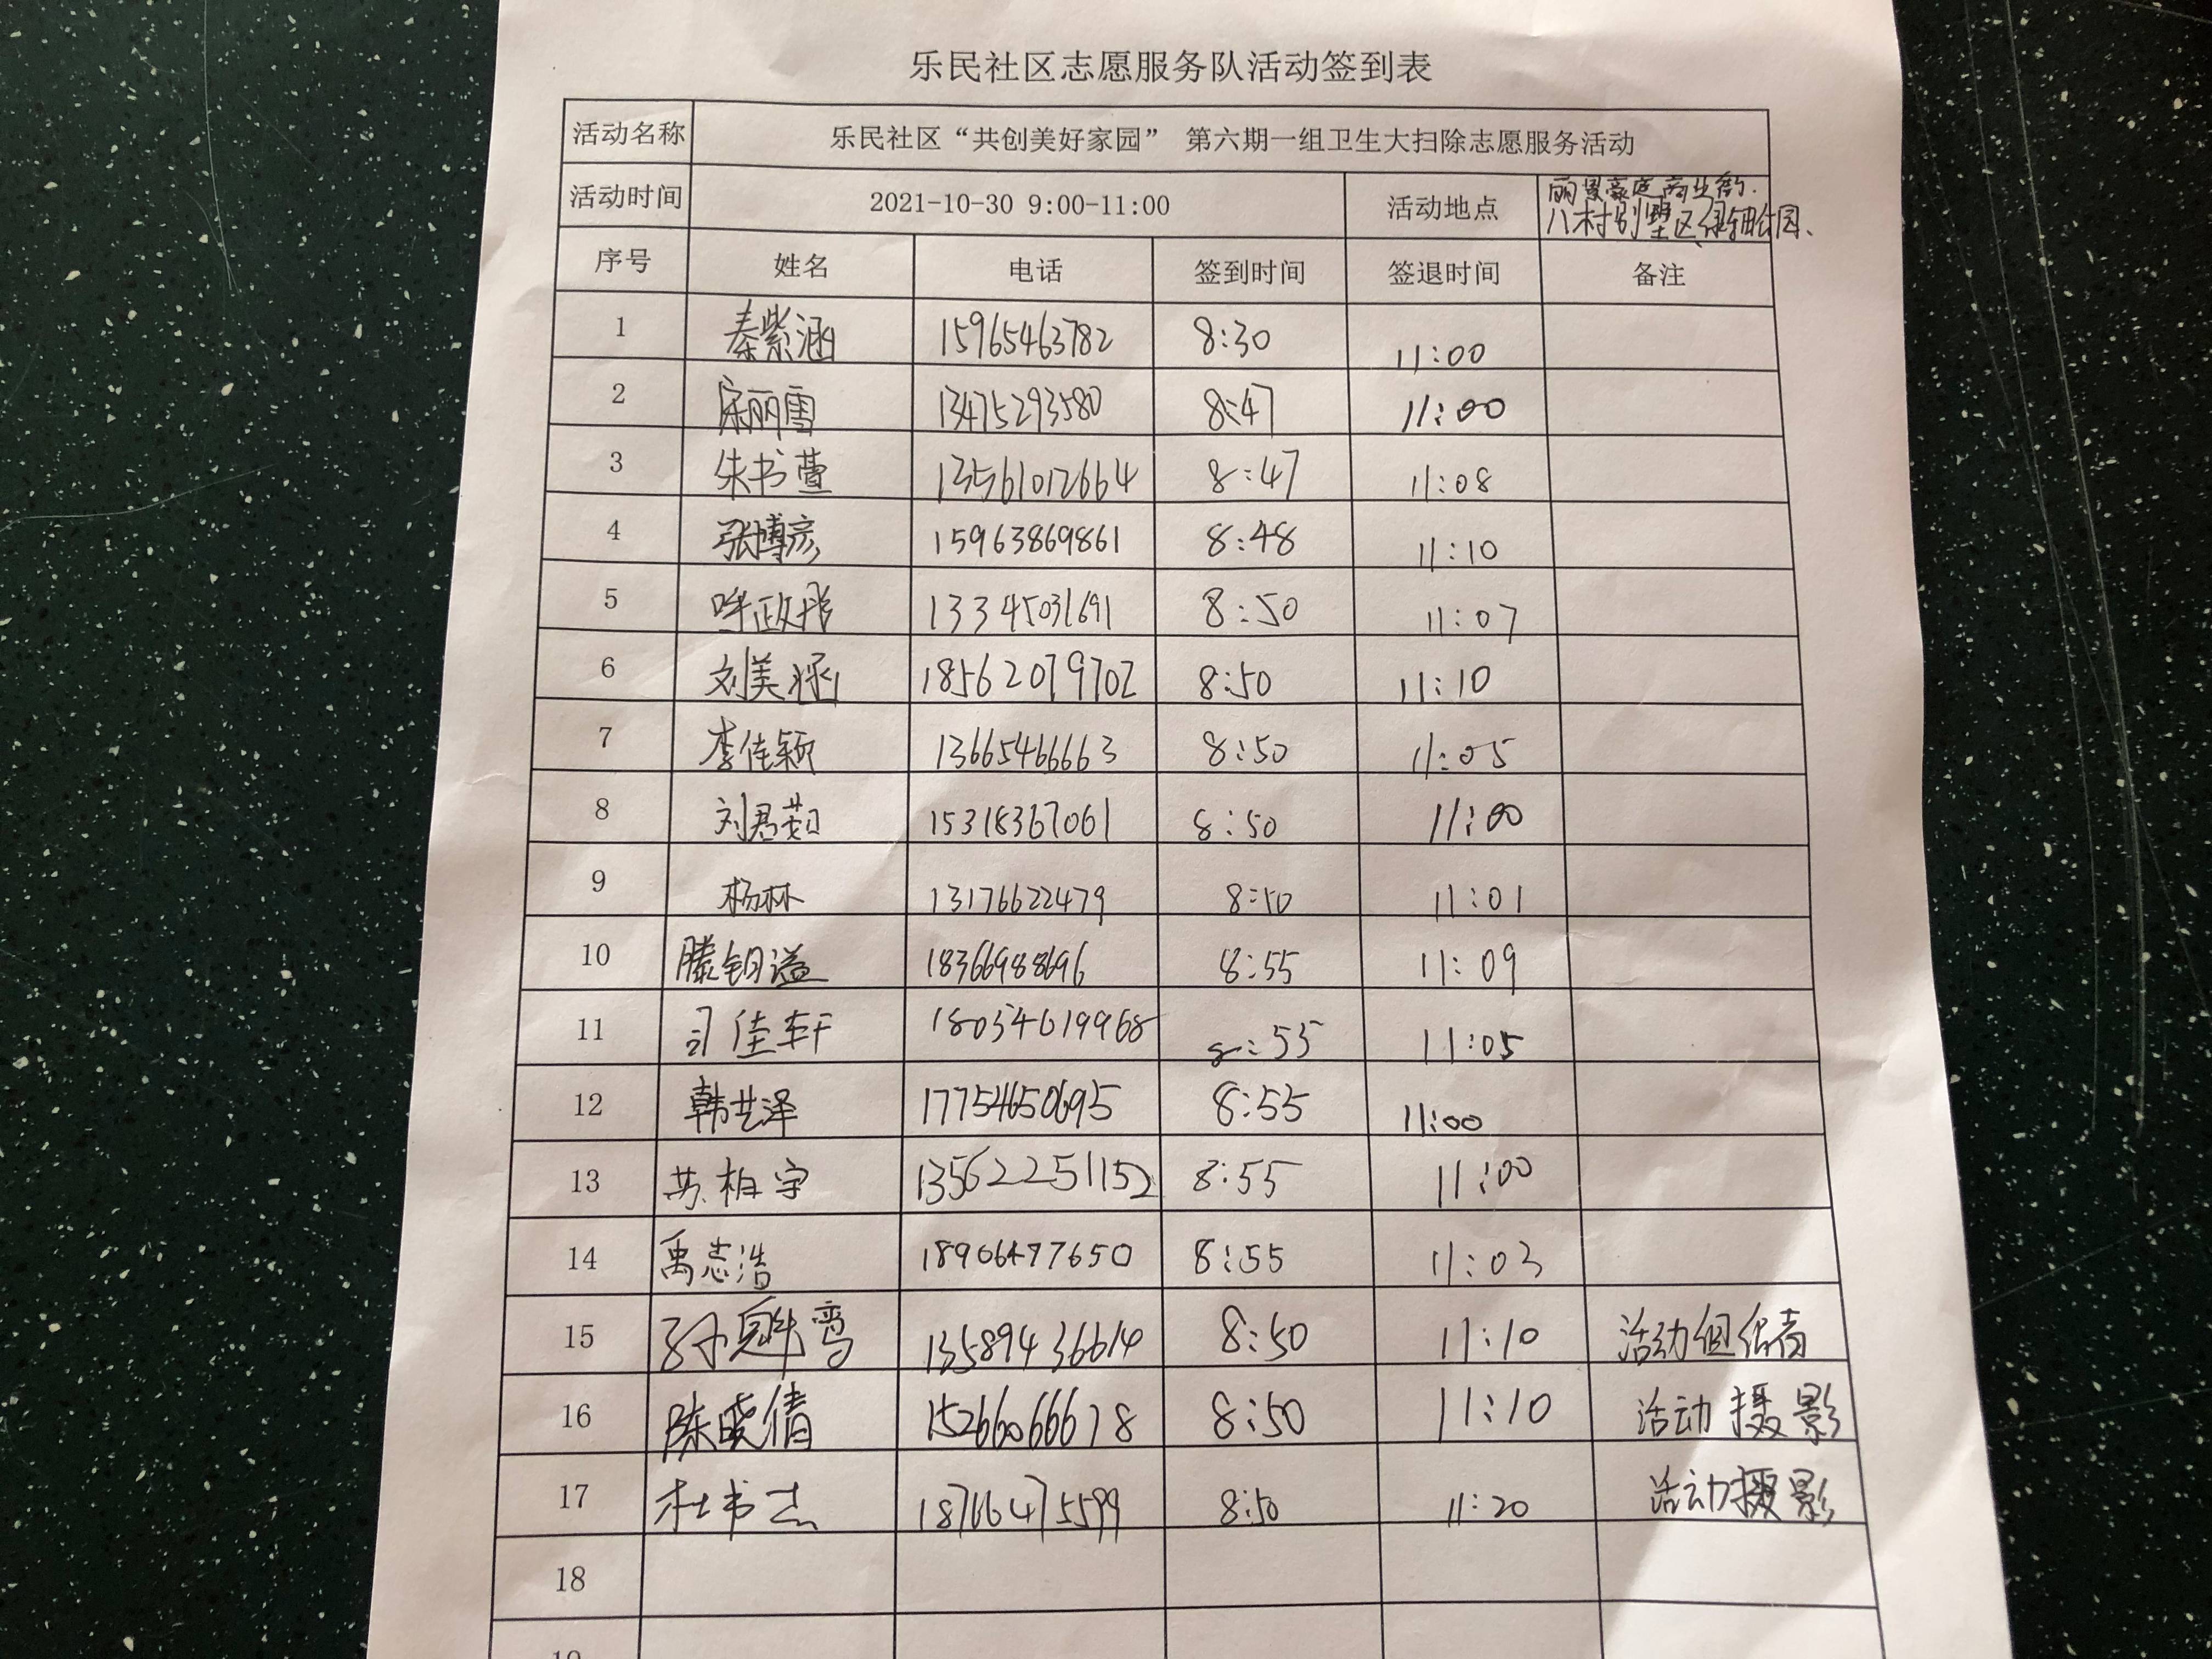 乐民社区志愿服务队活动签到表
活动名称 乐民社区“共创美好家园” 第六期一组卫生大扫除志愿服务活动
活动时间 2021-10-30 9:00-11:00 活动地点 丽景豪庭商业街.
八村别墅区绿轴公园、
序号 姓名 电话 签到时间 签退时间 备注
1 秦紫涵 15965463782 8:30 11:00
2 宋丽雪 13475293580 8:47 11:00
3 朱书萱 13561012664 8:47 11:08
4 张博彦 15963869861 8:48 11:10
5 13345031691 8:50 11:07
6 刘美涵 18562079702 8:50 11:10
7 李佳颖 13665466663 8:50 11:05
8 刘君茹 15318367061 8:50 11:00
9 杨林 13176622479 8:50 11:01
10 18366988696 8:55 11:09
11 司佳轩 18054619968 8:55 11:05
12 韩艺泽 17754650695 8:55 11:00
13 苏柏宇 13562251152 8:55 11:00
14 禹志浩 18906477650 8:55 11:03
15 13589436614 8:50 11:10 活动组织者
16 陈晓倩 15266066678 8:50 11:10 活动摄影
17 杜书杰 18766475599 8:50 11:20 活动摄影
18